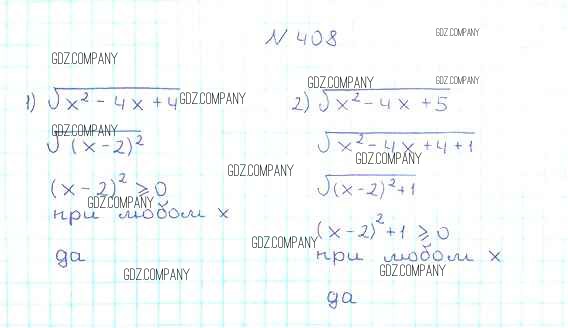 N 408
GDZ.COMPANY
GDZ.COMPANY
GDZ.COMPANY
GDZ.COMPANY
1) √x² - 4x + 4
GDZ.COMPANY
2) √x² - 4x + 5
GDZ.COMPANY
√(x - 2)²
√x² - 4x + 4 + 1
GDZ.COMPANY
GDZ.COMPANY
(x - 2)² ⩾ 0
√(x - 2)² + 1
GDZ.COMPANY
при любом x
(x - 2)² + 1 ⩾ 0
GDZ.COMPANY
да
при любом x
GDZ.COMPANY
GDZ.COMPANY
да